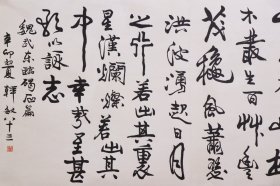 木叢生百艸豐
茂穐風蕭瑟
洪波湧起日月
之行若出其裏
星漢爛燦若出其
中幸哉至甚
歌以詠志
魏武东临碣石篇
辛卯夏 八十三